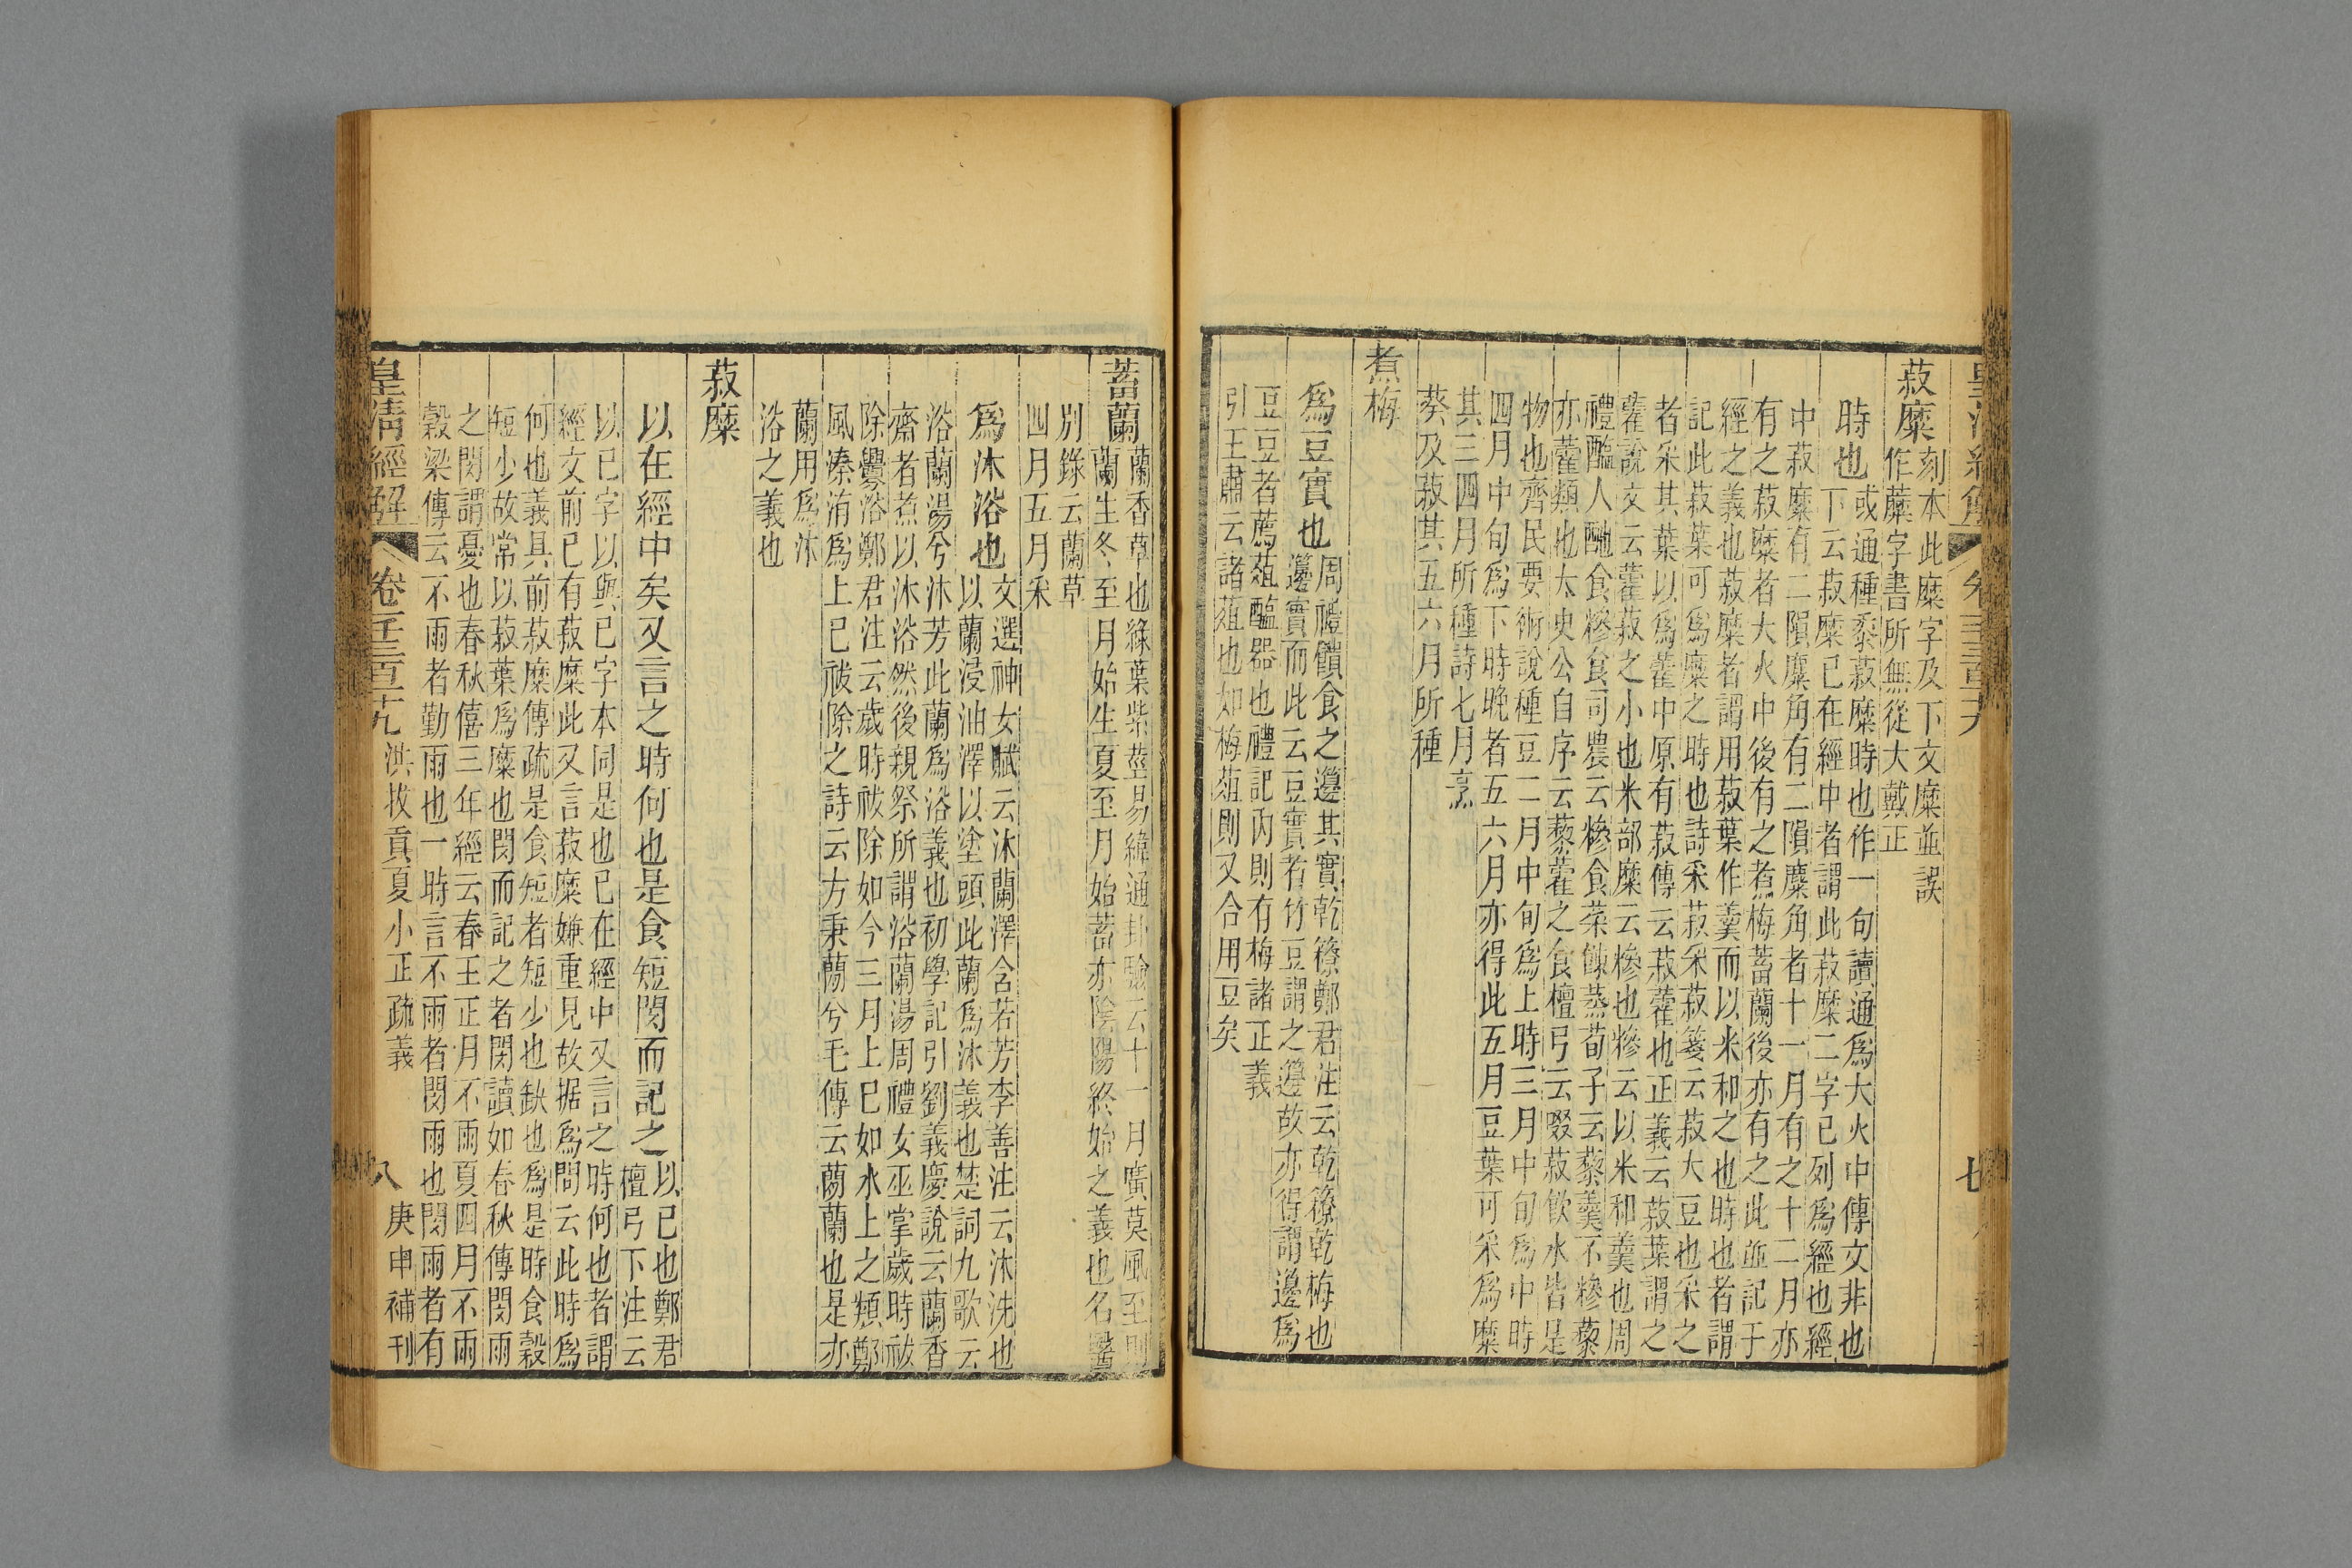 菽糜
刻本此糜字及下文糜並誤
作蘪字書所無從大戴正
時也
或通種黍菽糜時也作一句讀通爲大火中傳文非也
下云菽糜已在經中者謂此菽糜二字已列爲經也經
中菽糜有二隕麋角有二隕麋角者十一月有之十二月亦
有之菽糜者大火中後有之煮梅蓄蘭後亦有之此並記于
經之義也菽糜者謂用菽葉作羹而以米和之也時也者謂
記此菽葉可爲糜之時也詩采菽采菽箋云菽大豆也采之
者采其葉以爲藿中原有菽傳云菽藿也正義云菽葉謂之
藿說文云藿菽之小也米部糜云糝也糝云以米和羹也周
禮醢人酏食糝食司農云糝食菜餗蒸荀子云藜羹不糝藜
亦藿類也太史公自序云藜藿之食檀弓云啜菽飲水皆是
物也齊民要術說種豆二月中旬爲上時三月中旬爲中時
四月中旬爲下時晚者五六月亦得此五月豆葉可采爲糜
其三四月所種詩七月烹
葵及菽其五六月所種
煮梅
爲豆實也
周禮饋食之籩其實乾䕩鄭君注云乾䕩乾梅也
籩實而此云豆實者竹豆謂之籩故亦得謂籩爲
豆豆者薦葅醢器也禮記内則有梅諸正義
引王肅云諸葅也如梅葅則又合用豆矣
蓄蘭
蘭香草也綠葉紫莖易緯通卦驗云十一月廣莫風至則
蘭生冬至月始生夏至月始蓄亦陰陽終始之義也名醫
別錄云蘭草
四月五月采
爲沐浴也
文選神女賦云沐蘭澤含若芳李善注云沐洗也
以蘭浸油澤以塗頭此蘭爲沐義也楚詞九歌云
浴蘭湯兮沐芳此蘭爲浴義也初學記引劉義慶說云蘭香
齋者煮以沐浴然後親祭所謂浴蘭湯周禮女巫掌歲時祓
除釁浴鄭君注云歲時祓除如今三月上巳如水上之類鄭
風溱洧爲上巳祓除之詩云方秉蕳兮毛傳云蕳蘭也是亦
蘭用爲沐
浴之義也
菽糜
以在經中矣又言之時何也是食短閔而記之
以已也鄭君
檀弓下注云
以已字以與已字本同是也已在經中又言之時何也者謂
經文前已有菽糜此又言菽糜嫌重見故据爲問云此時爲
何也義具前菽糜傳疏是食短者短少也缺也爲是時食穀
短少故常以菽葉爲糜也閔而記之者閔讀如春秋傳閔雨
之閔謂憂也春秋僖三年經云春王正月不雨夏四月不雨
穀梁傳云不雨者勤雨也一時言不雨者閔雨也閔雨者有
皇清經解 卷一千三百二十九 洪拔貢夏小正疏義 八 庚申補刊